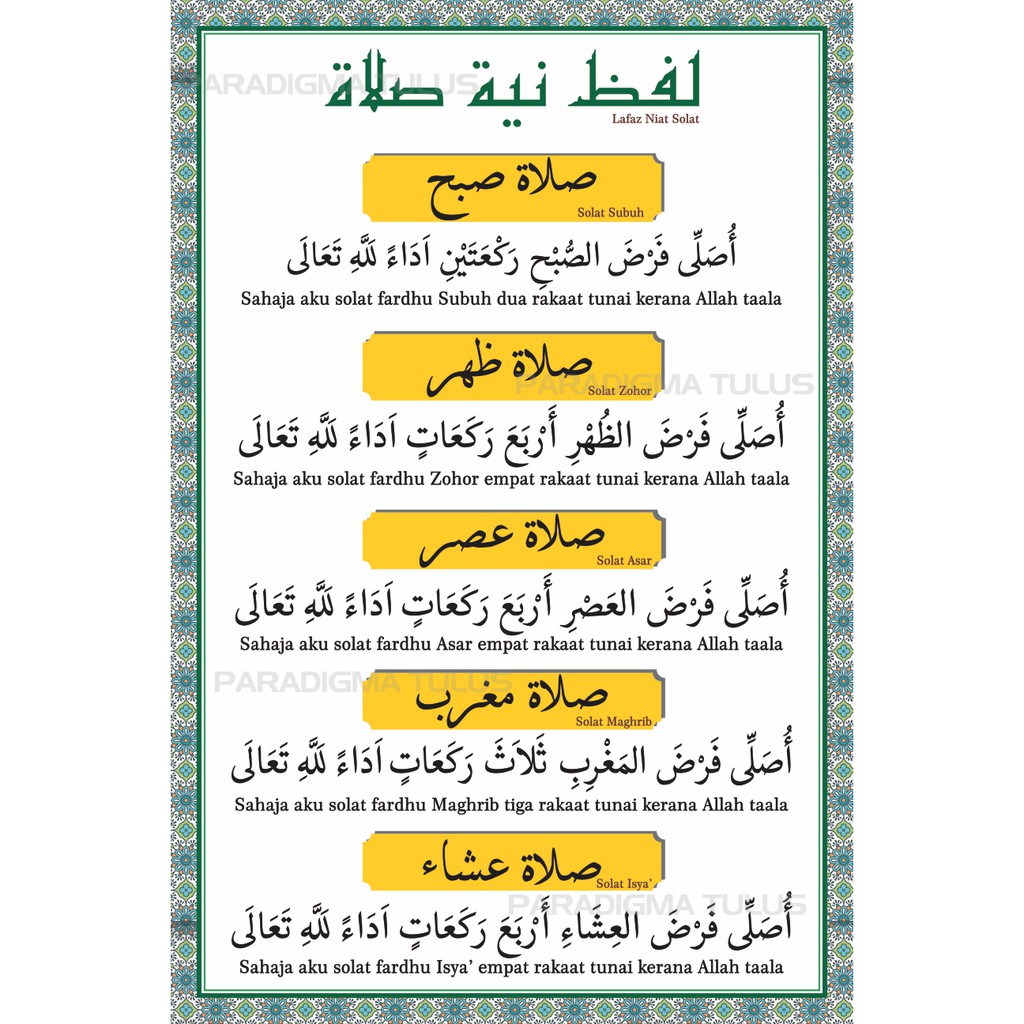 لفظ نية صلاة
Lafaz Niat Solat
صلاة صبح
Solat Subuh
أُصَلِّى فَرْضَ الصُّبْحِ رَكْعَتَيْنِ اَدَاءً لِلَّهِ تَعَالَى
Sahaja aku solat fardhu Subuh dua rakaat tunai kerana Allah taala
صلاة ظهر
Solat Zohor
أُصَلِّى فَرْضَ الظُهْرِ أَرْبَعَ رَكَعَاتٍ اَدَاءً لِلَّهِ تَعَالَى
Sahaja aku solat fardhu Zohor empat rakaat tunai kerana Allah taala
صلاة عصر
Solat Asar
أُصَلِّى فَرْضَ العَصْرِ أَرْبَعَ رَكَعَاتٍ اَدَاءً لِلَّهِ تَعَالَى
Sahaja aku solat fardhu Asar empat rakaat tunai kerana Allah taala
صلاة مغرب
Solat Maghrib
أُصَلِّى فَرْضَ المَغْرِبِ ثَلَاثَ رَكَعَاتٍ اَدَاءً لِلَّهِ تَعَالَى
Sahaja aku solat fardhu Maghrib tiga rakaat tunai kerana Allah taala
صلاة عشاء
Solat Isya’
أُصَلِّى فَرْضَ العِشَاءِ أَرْبَعَ رَكَعَاتٍ اَدَاءً لِلَّهِ تَعَالَى
Sahaja aku solat fardhu Isya’ empat rakaat tunai kerana Allah taala
PARADIGMA TULUS
PARADIGMA TULUS
PARADIGMA TULUS
PARADIGMA TULUS